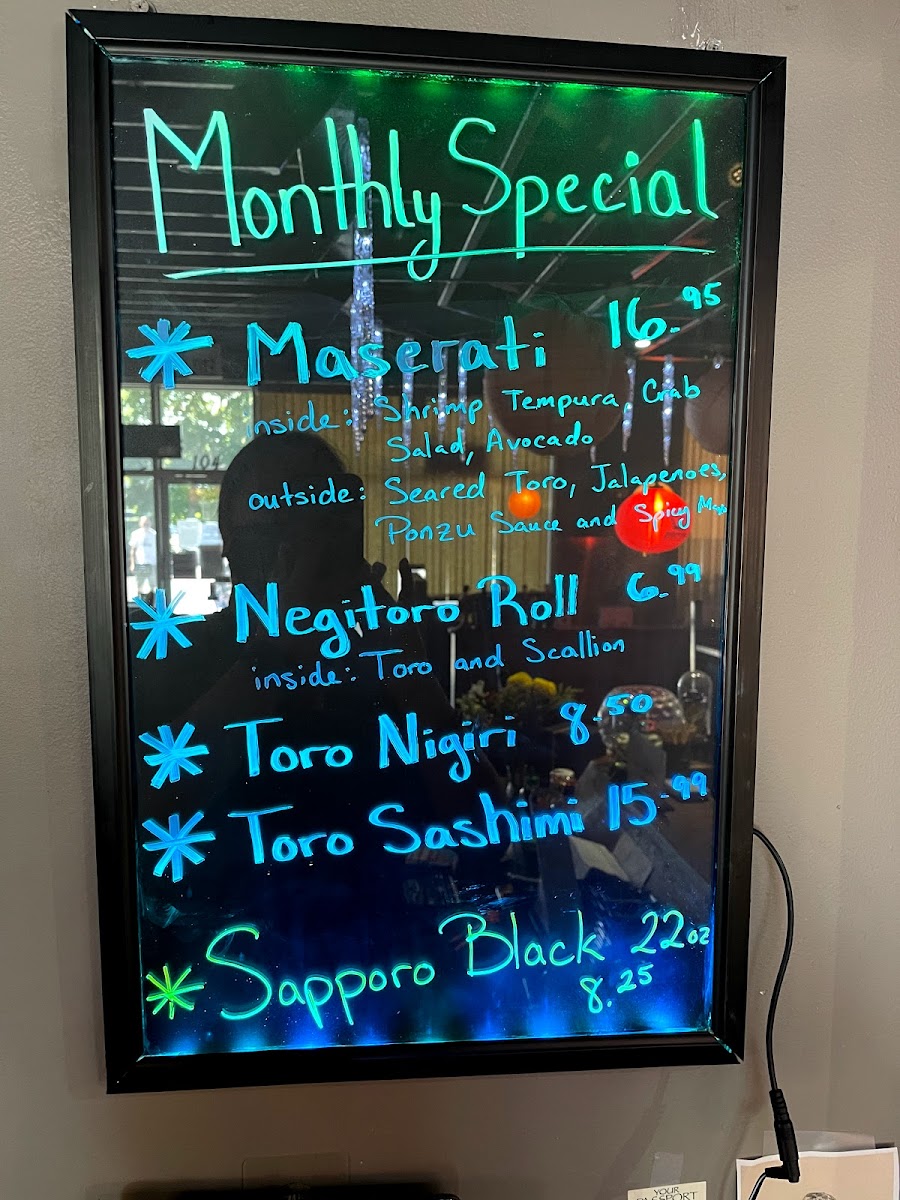 Monthly Special
* Maserati 16.95
inside: Shrimp Tempura, Crab
Salad, Avocado
outside: Seared Toro, Jalapenoes,
Ponzu Sauce and Spicy Mayo
* Negitoro Roll 6.99
inside: Toro and Scallion
* Toro Nigiri 8.50
* Toro Sashimi 15.99
* Sapporo Black 22oz
8.25
104
YOUR
PASSPORT